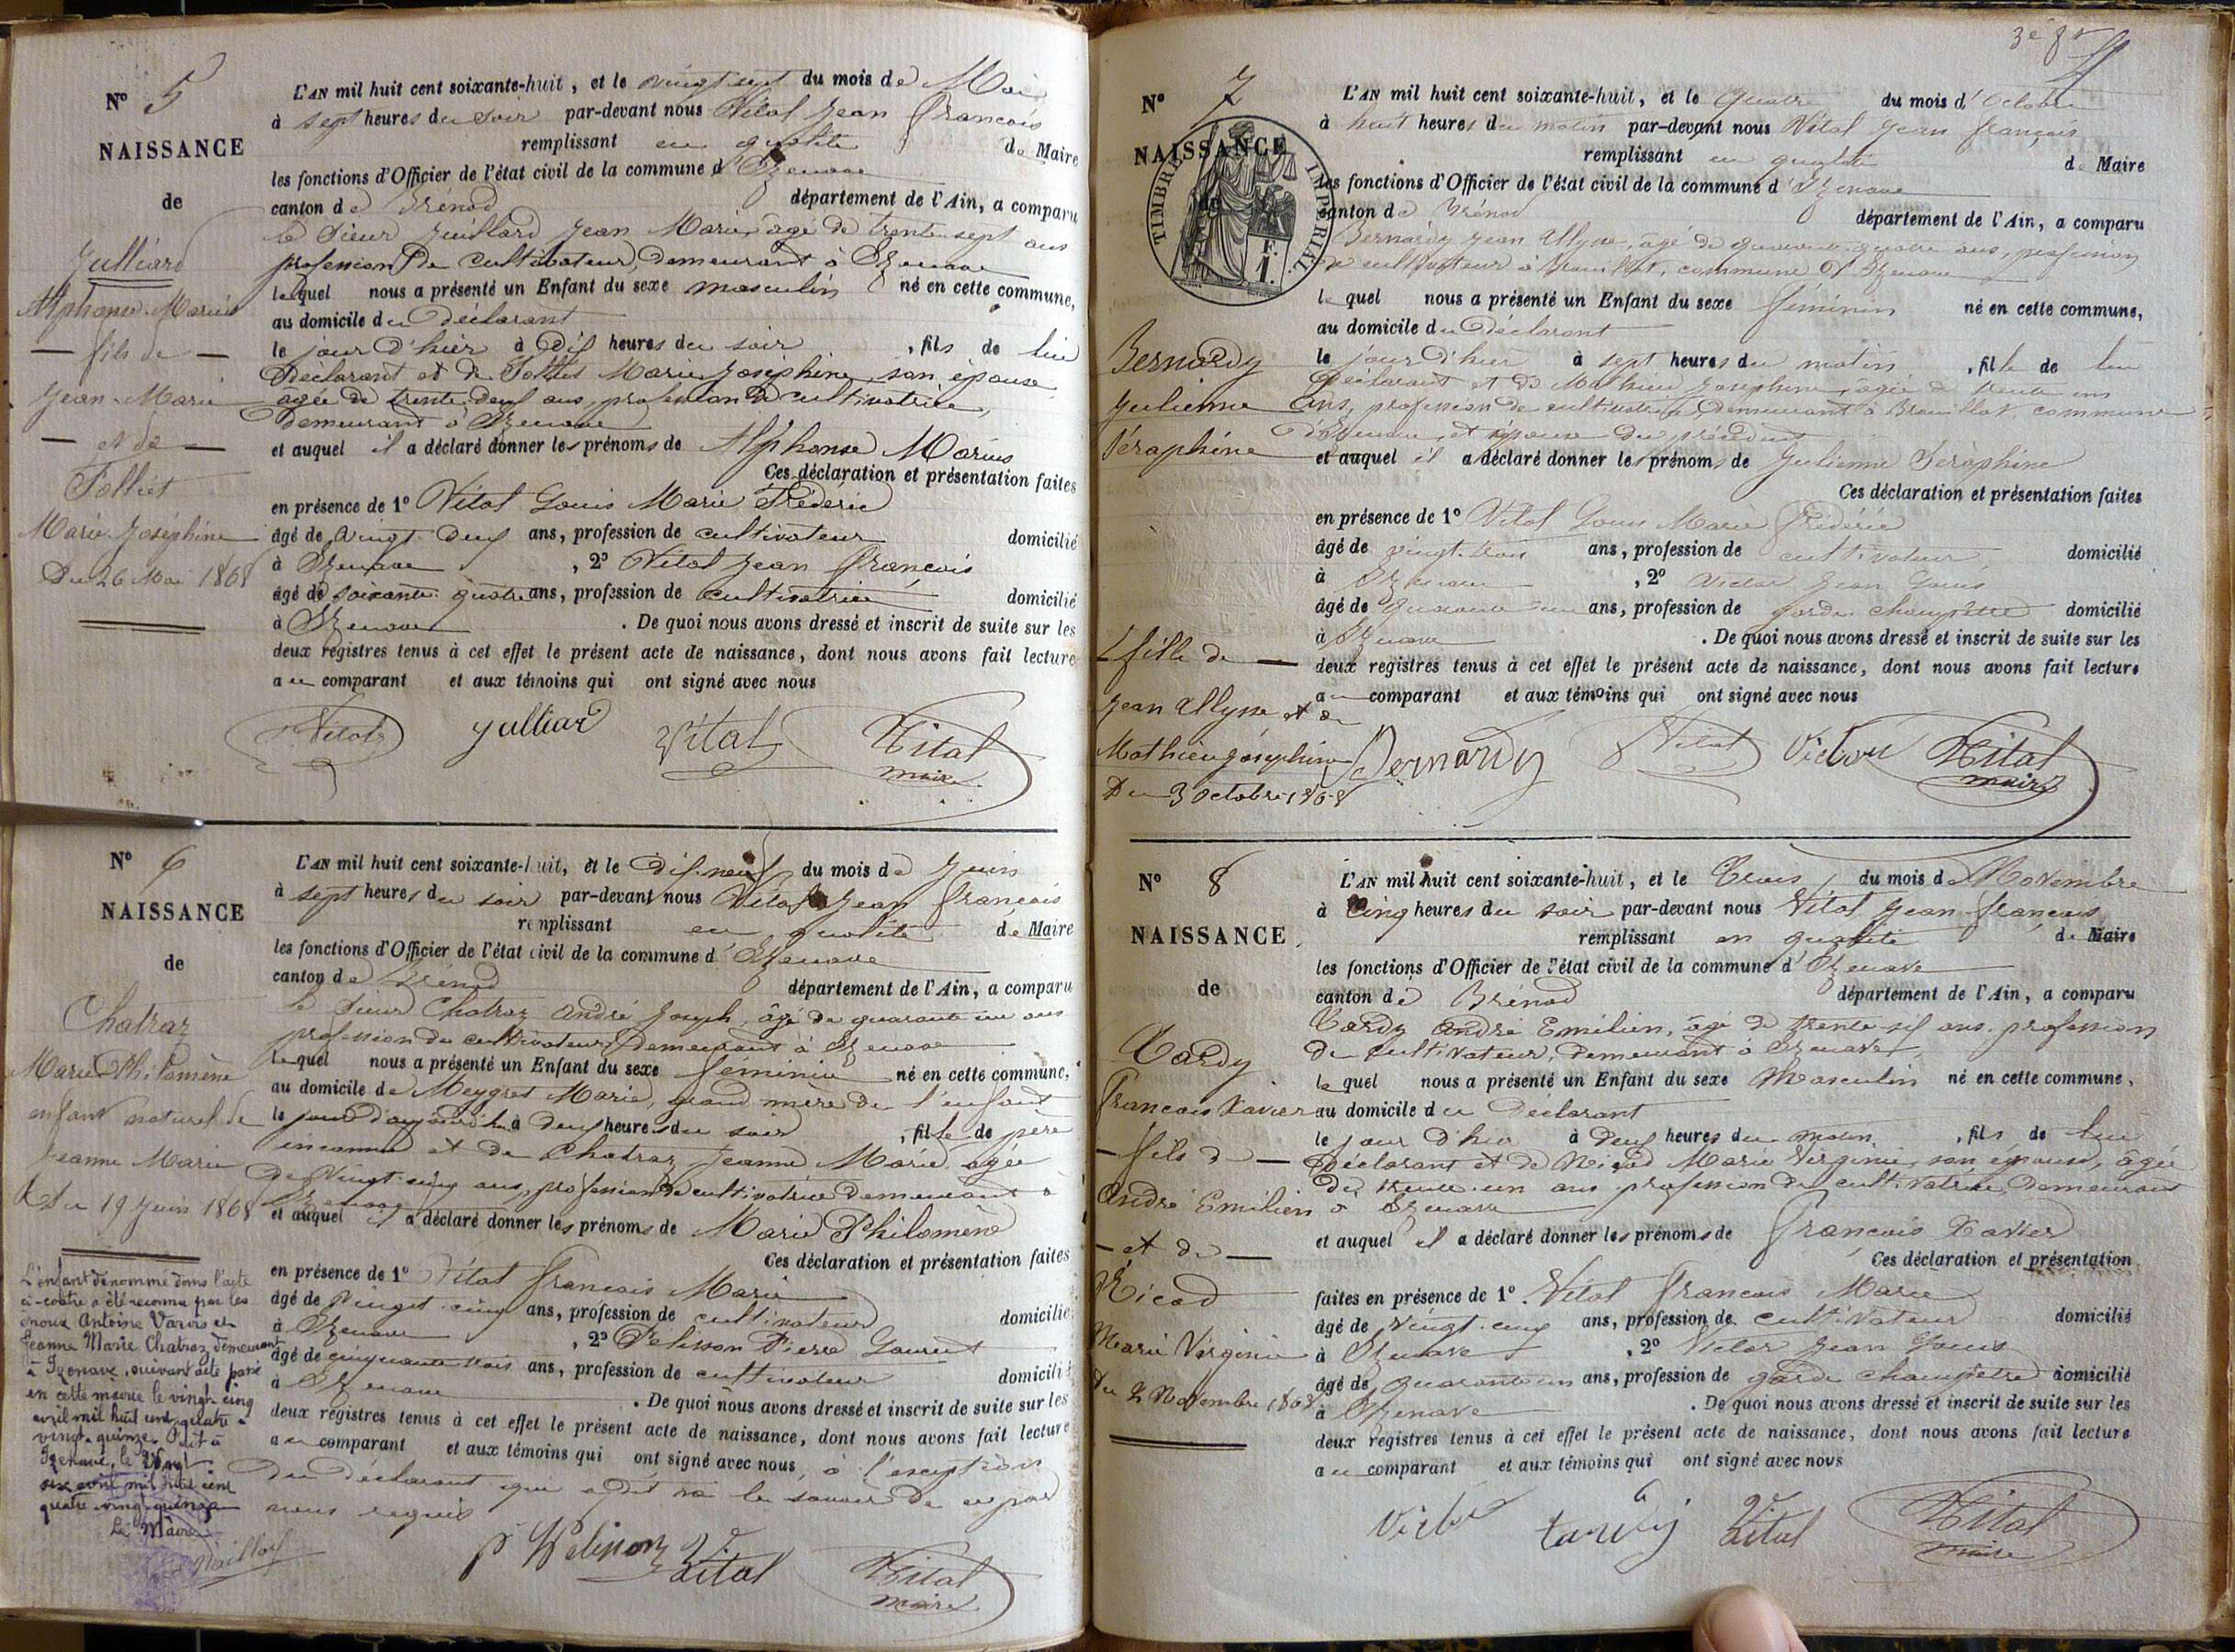 N° 5
NAISSANCE
de
Julliard
Alphonse Marius
fils de
Jean-Marie
et de
Folliet
Marie Joséphine
Du 26 Mai 1868
L'AN mil huit cent soixante-huit, et le vingt sept du mois de Mai
à sept heures du soir par-devant nous Vital Jean François
remplissant en qualité de Maire
les fonctions d'Officier de l'état civil de la commune d'Izenave
canton de Brénod département de l'Ain, a comparu
le Sieur Juillard Jean Marie, âgé de trente sept ans
profession de cultivateur, demeurant à Izenave
lequel nous a présenté un Enfant du sexe masculin né en cette commune,
au domicile du Déclarant
le jour d'hier à Dix heures du soir, fils de lui
Déclarant et de Folliet Marie Joséphine son épouse
âgée de trente-deux ans, profession de cultivatrice,
demeurant à Izenave
et auquel il a déclaré donner les prénoms de Alphonse Marius
Ces déclaration et présentation faites
en présence de 1° Vital Louis Marie Fréderic
âgé de vingt-deux ans, profession de cultivateur domicilié
à Izenave, 2° Vital Jean François
âgé de soixante quatre ans, profession de cultivatrice domicilié
à Izenave. De quoi nous avons dressé et inscrit de suite sur les
deux registres tenus à cet effet le présent acte de naissance, dont nous avons fait lecture
au comparant et aux témoins qui ont signé avec nous
Vital julliard Vital Vital
maire
N° 6
NAISSANCE
de
Chatraz
Marie Philomène
enfant naturel de
Jeanne Marie
Du 19 Juin 1868
L'enfant dénommé dans l'acte
ci-contre a été reconnu par les
époux Antoine et
Jeanne Marie Chatraz demeurant
à Izenave, suivant acte passé
en cette mairie le vingt-cinq
avril mil huit cent quatre-
vingt-quinze. Dit à
Izenave, le vingt
six avril mil huit cent
quatre-vingt-quinze
Le Maire
L'AN mil huit cent soixante-huit, et le dix-neuf du mois de Juin
à sept heures du soir par-devant nous Vital Jean François
remplissant en qualité de Maire
les fonctions d'Officier de l'état civil de la commune d'Izenave
canton de Brénod département de l'Ain, a comparu
le Sieur Chatraz André Joseph, âgé de quarante un ans
profession de cultivateur, demeurant à Izenave
lequel nous a présenté un Enfant du sexe féminin né en cette commune,
au domicile de Meygret Marie, grand mère de l'enfant
le jour d'aujourd'hui à deux heures du soir, fille de père
inconnu et de Chatraz Jeanne Marie âgée
de vingt-cinq ans, profession de cultivatrice demeurant à
Izenave
et auquel il a déclaré donner les prénoms de Marie Philomène
Ces déclaration et présentation faites
en présence de 1° Vital François Marie
âgé de vingt-cinq ans, profession de cultivateur domicilié
à Izenave, 2° Pelisson Pierre Laurent
âgé de cinquante trois ans, profession de cultivateur domicilié
à Izenave. De quoi nous avons dressé et inscrit de suite sur les
deux registres tenus à cet effet le présent acte de naissance, dont nous avons fait lecture
au comparant et aux témoins qui ont signé avec nous, à l'exception
du déclarant qui a dit ne le savoir de ce par
nous requis
P Pelisson Vital Vital
maire
N° 7
NAISSANCE
de
TIMBRE IMPERIAL
F.
1.
Bernardy
Julienne
Séraphine
fille de
Jean Ulysse et de
Mathieu Joséphine
Du 3 Octobre 1868
L'AN mil huit cent soixante-huit, et le quatre du mois d'Octobre
à huit heures du matin par-devant nous Vital Jean françois
remplissant en qualité de Maire
les fonctions d'Officier de l'état civil de la commune d'Izenave
canton de Brénod département de l'Ain, a comparu
Bernardy Jean Ulysse, âgé de quarante-quatre ans, profession
de cultivateur à Breuillat, commune d'Izenave
lequel nous a présenté un Enfant du sexe féminin né en cette commune,
au domicile du Déclarant
le jour d'hier à sept heures du matin, fille de lui
Déclarant et de Mathieu Joséphine, âgée de trente
ans, profession de cultivatrice demeurant à Breuillat, commune
d'Izenave, et épouse du précédent
et auquel il a déclaré donner les prénoms de Julienne Séraphine
Ces déclaration et présentation faites
en présence de 1° Vital Louis Marie Fréderic
âgé de vingt-trois ans, profession de cultivateur, domicilié
à Izenave, 2° Victor Jean Louis
âgé de quarante un ans, profession de garde champêtre domicilié
à Izenave. De quoi nous avons dressé et inscrit de suite sur les
deux registres tenus à cet effet le présent acte de naissance, dont nous avons fait lecture
au comparant et aux témoins qui ont signé avec nous
Bernardy Vital Victor Vital
maire
N° 8
NAISSANCE
de
Tardy
François Xavier
fils de
André Emilien
et de
Nicod
Marie Virginie
Du 2 Novembre 1868
L'AN mil huit cent soixante-huit, et le Trois du mois de Novembre
à Cinq heures du soir par-devant nous Vital Jean-françois
remplissant en qualité de Maire
les fonctions d'Officier de l'état civil de la commune d'Izenave
canton de Brénod département de l'Ain, a comparu
Tardy André Emilien, âgé de trente-six ans, profession
de cultivateur, demeurant à Izenave,
lequel nous a présenté un Enfant du sexe Masculin né en cette commune,
au domicile du Déclarant
le jour d'hier à Deux heures du matin, fils de lui
Déclarant et de Nicod Marie Virginie, son épouse, âgée
de trente-un ans profession de cultivatrice, Demeurant
à Izenave
et auquel il a déclaré donner les prénoms de François Xavier
Ces déclaration et présentation
faites en présence de 1° Vital François Marie
âgé de vingt-cinq ans, profession de cultivateur domicilié
à Izenave, 2° Victor Jean Louis
âgé de quarante un ans, profession de garde champêtre domicilié
à Izenave. De quoi nous avons dressé et inscrit de suite sur les
deux registres tenus à cet effet le présent acte de naissance, dont nous avons fait lecture
au comparant et aux témoins qui ont signé avec nous
Victor tardy Vital Vital
maire